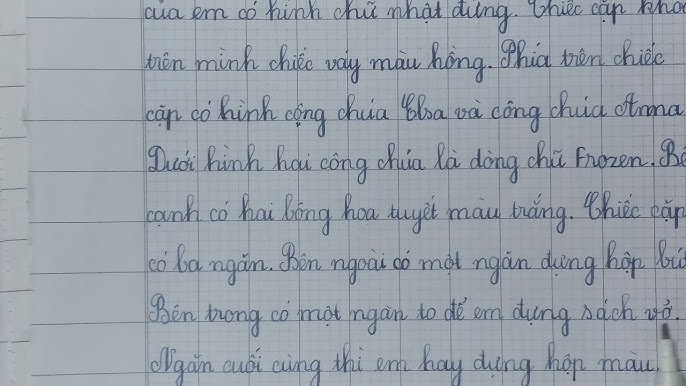 của em có hình chữ nhật đứng. Chiếc cặp khoá
trên mình chiếc váy màu hồng. Phía trên chiếc
cặp có hình công chúa Elsa và công chúa Anna
Dưới hình hai công chúa là dòng chữ Frozen. Bê
cạnh có hai bông hoa tuyết màu trắng. Chiếc cặp
có ba ngăn. Bên ngoài có một ngăn đựng hộp bú
Bên trong có một ngăn to để em đựng sách vở.
Ngăn cuối cùng thì em hay đựng hộp màu.